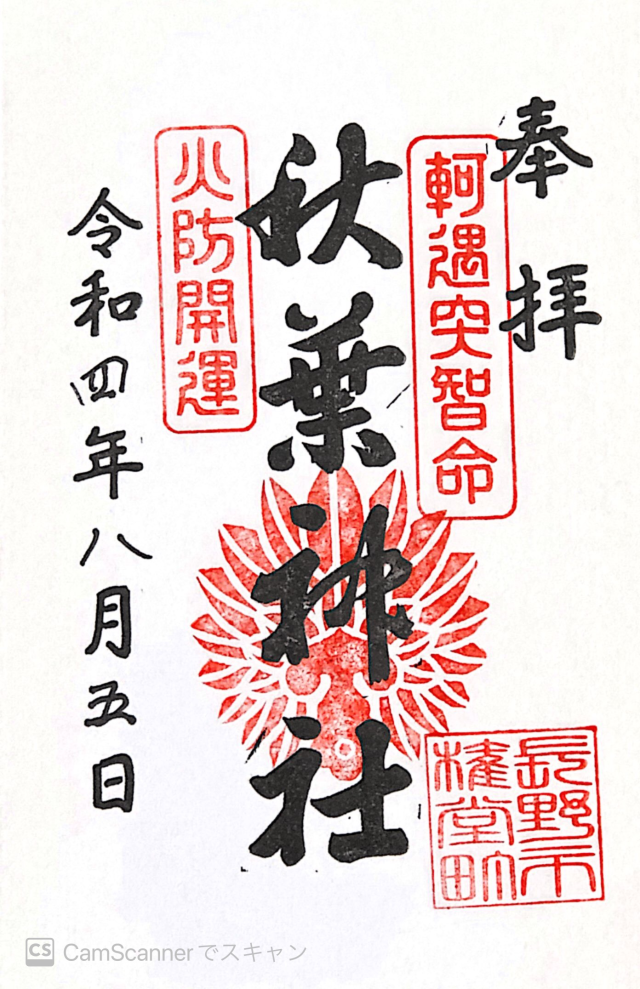 奉拝
軻遇突智命
秋葉神社
火防開運
令和四年八月五日
長野市
権堂町
CS CamScannerでスキャン